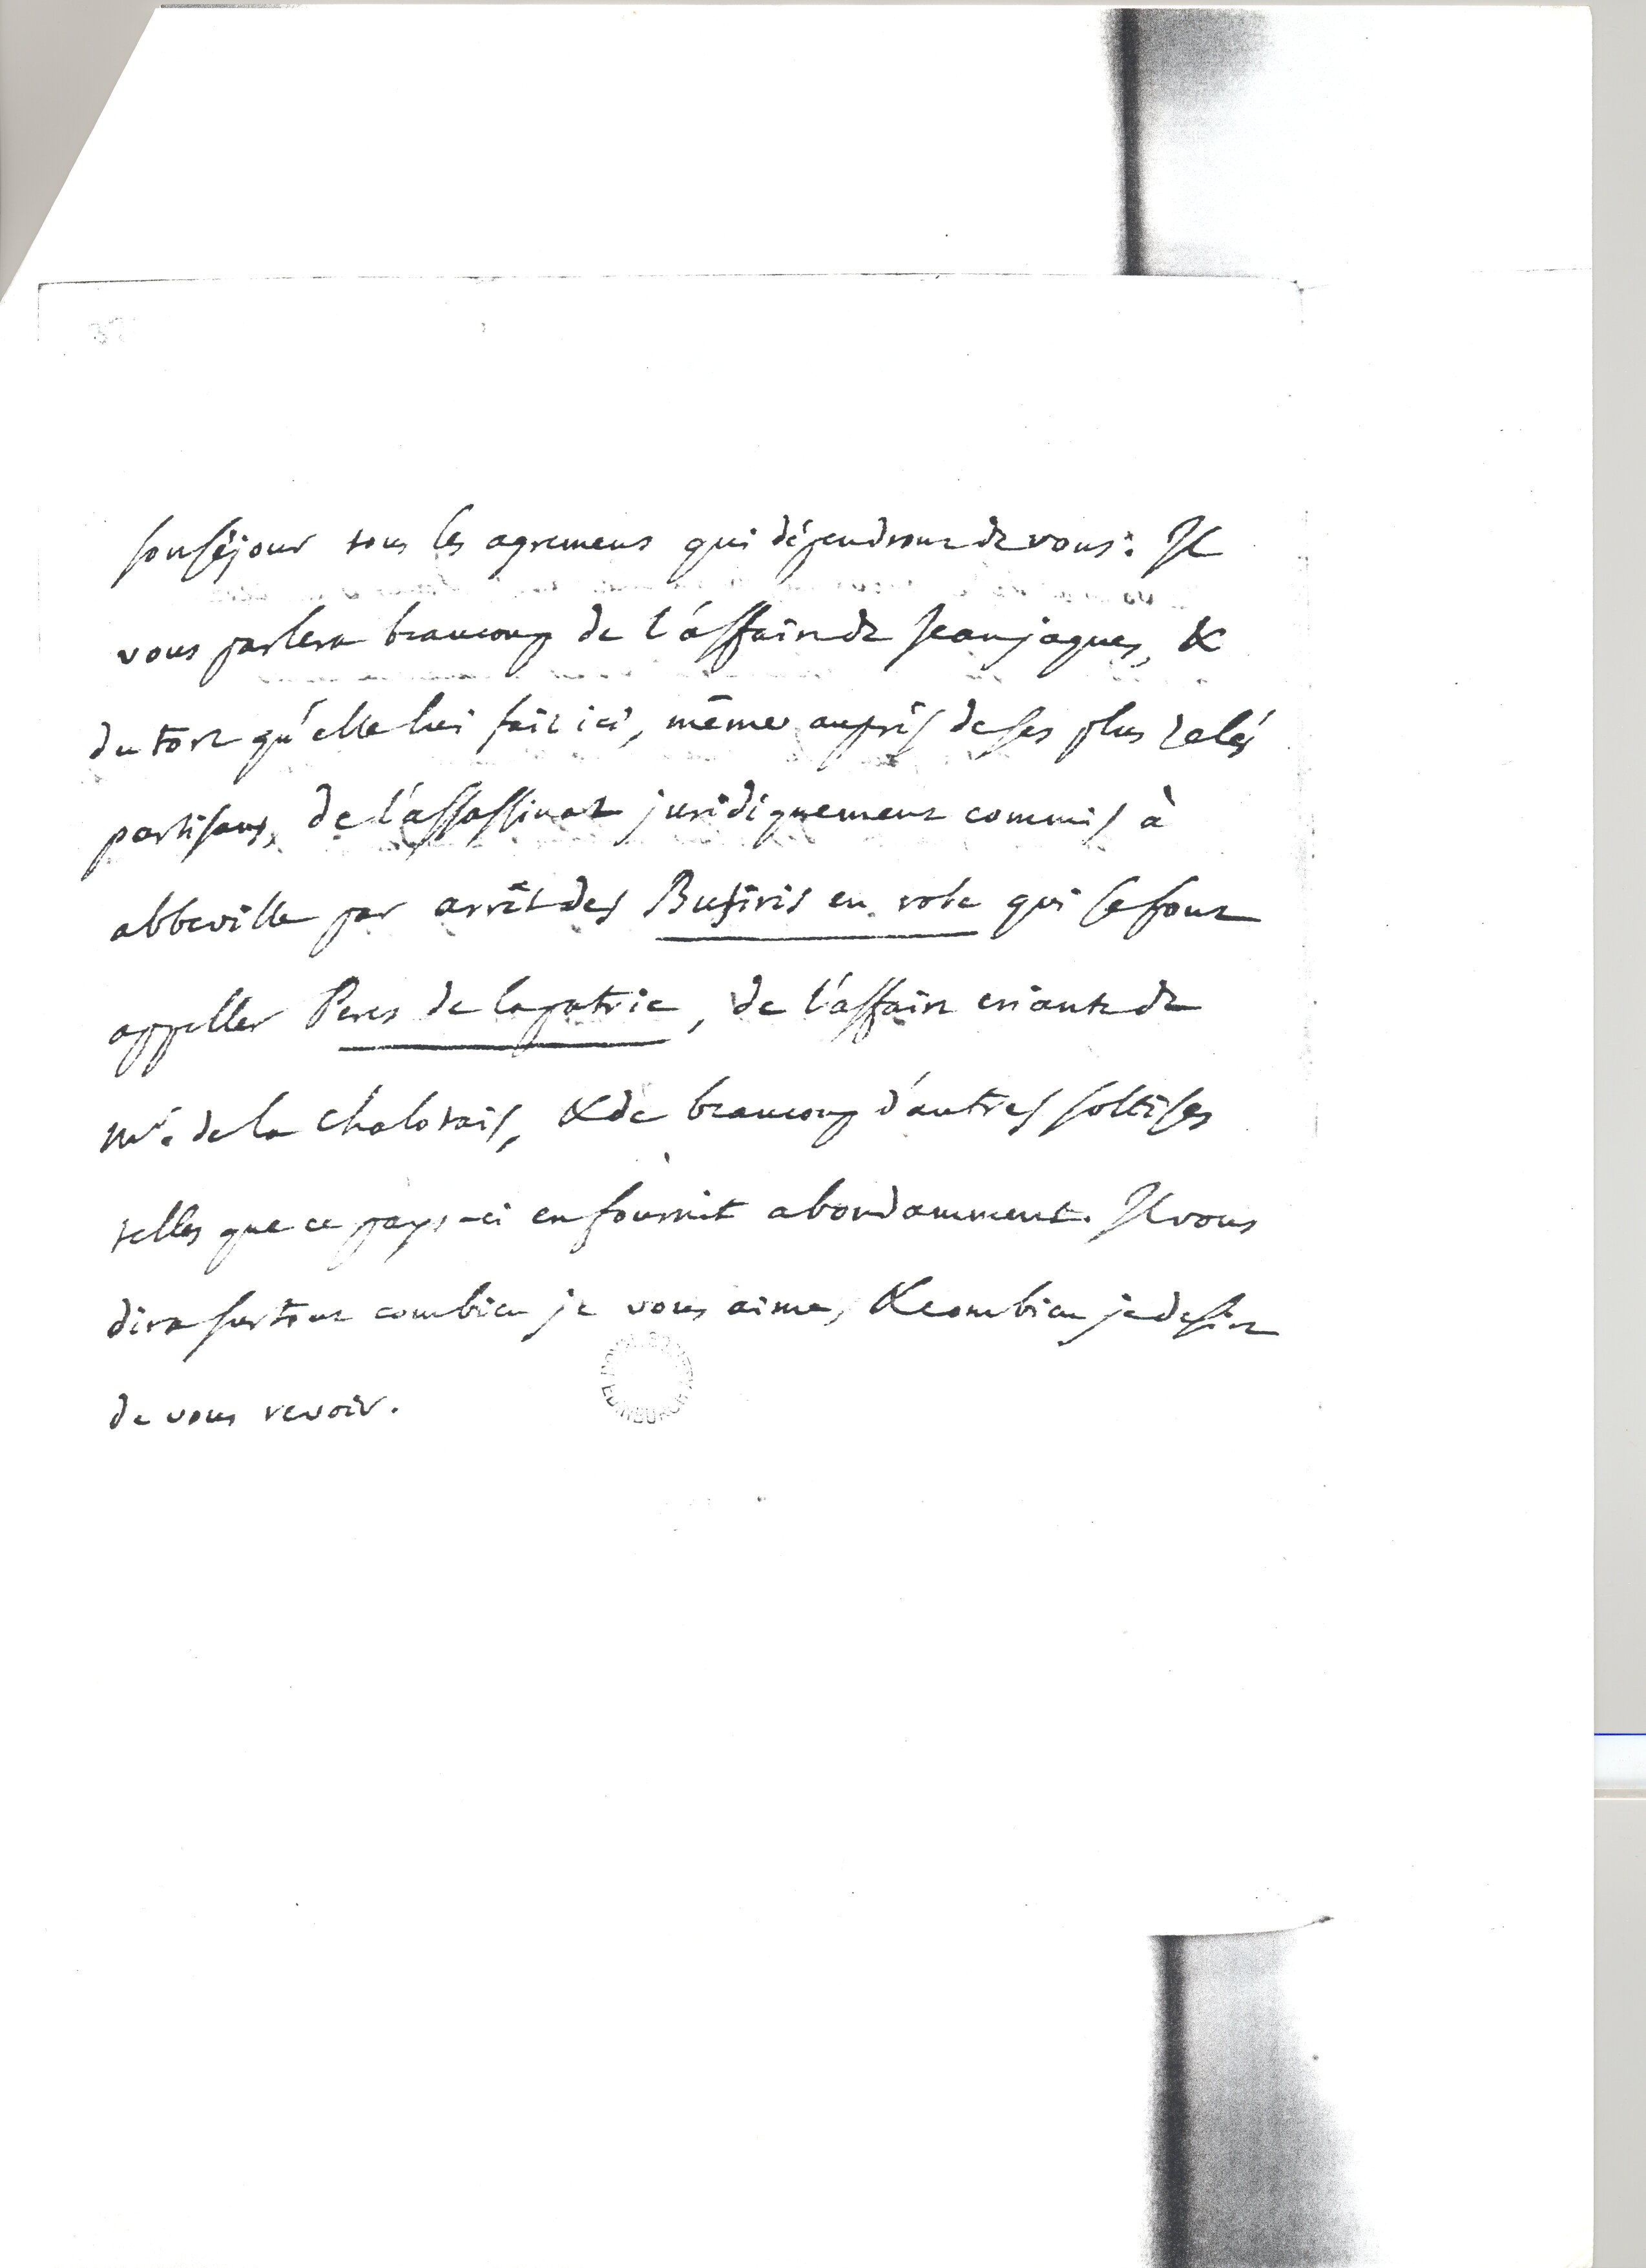 son séjour tous les agremens qui dépendront de vous: Il
vous parlera beaucoup de l'affaire de Jean jaques, &
du tort qu'elle lui fait ici, même auprès de ses plus zelés
partisans, de l'assassinat juridiquement commis à
abbeville par arrêt des Busiris en robe qui se font
appeller Peres de la patrie, de l'affaire criante de
Mr. de la Chalotais, & de beaucoup d'autres sottises
telles que ce pays-ci en fournit abondamment. Il vous
dira surtout combien je vous aime, & combien je desire
de vous revoir.
EDINBURGH